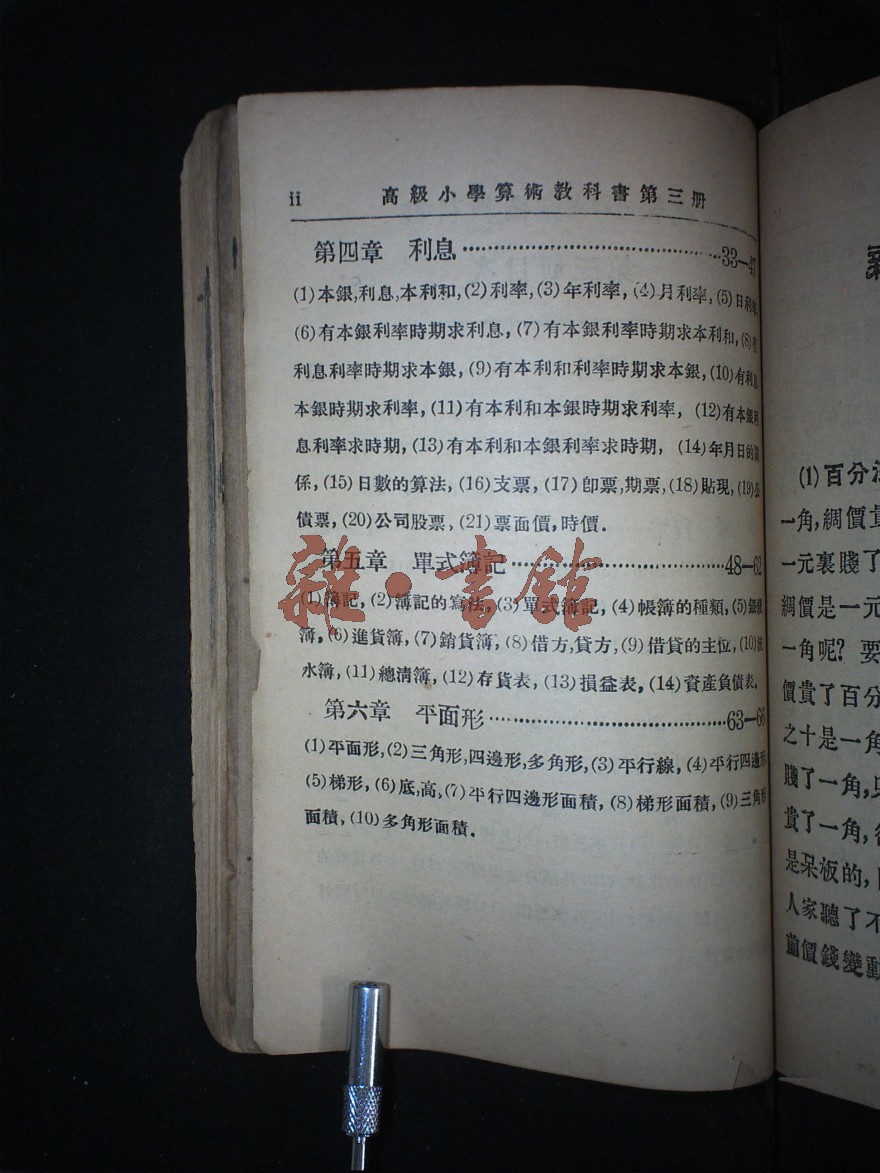 ii 高級小學算術教科書第三册
第四章 利息……………………………33—47
(1)本銀,利息,本利和,(2)利率,(3)年利率,(4)月利率,(5)日利率,
(6)有本銀利率時期求利息,(7)有本銀利率時期求本利和,(8)有
利息利率時期求本銀,(9)有本利和利率時期求本銀,(10)有利息
本銀時期求利率,(11)有本利和本銀時期求利率,(12)有本銀利
息利率求時期,(13)有本利和本銀利率求時期,(14)年月日的關
係,(15)日數的算法,(16)支票,(17)卽票,期票,(18)貼現,(19)公
債票,(20)公司股票,(21)票面價,時價.
第五章 單式簿記……………………………48—62
(1)簿記,(2)簿記的寫法,(3)單式簿記,(4)帳簿的種類,(5)銀錢
簿,(6)進貨簿,(7)銷貨簿,(8)借方,貸方,(9)借貸的主位,(10)流
水簿,(11)總淸簿,(12)存貨表,(13)損益表,(14)資產負債表.
第六章 平面形……………………………63—66
(1)平面形,(2)三角形,四邊形,多角形,(3)平行線,(4)平行四邊形,
(5)梯形,(6)底,高,(7)平行四邊形面積,(8)梯形面積,(9)三角形
面積,(10)多角形面積.
雜·書館
(1)百分法
一角,綢價貴
一元裏賤了
綢價是一元
一角呢?要
價貴了百分
之十是一角
賤了一角,
貴了一角,
是呆板的,
人家聽了不
價錢變動